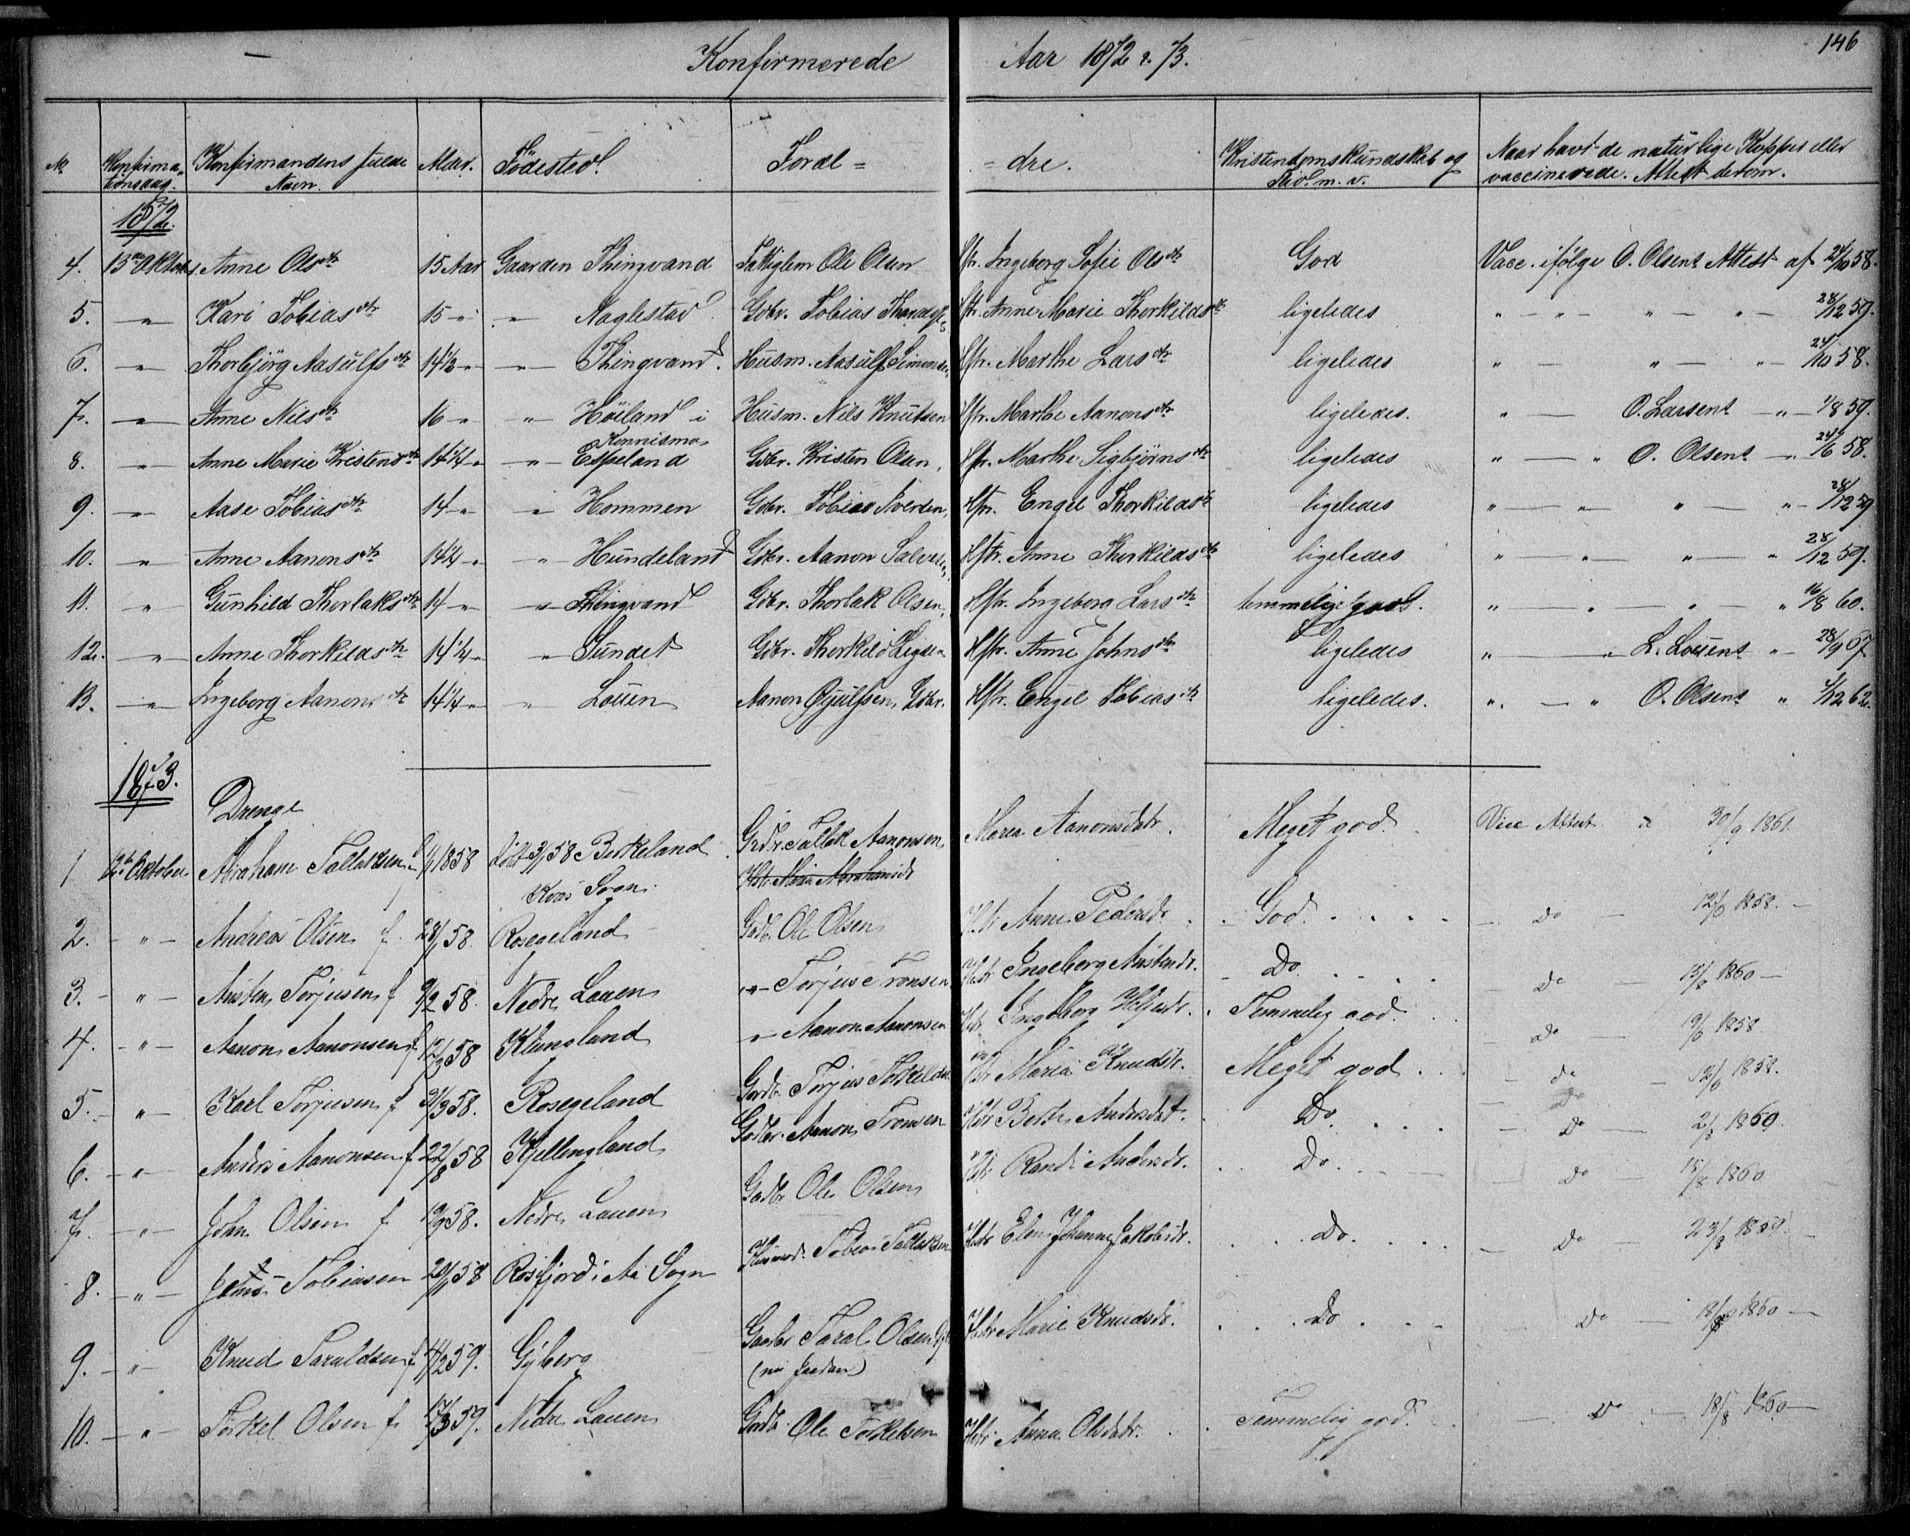 Konfirmerede Aar 1872 & 73. 146
No Konfirmationsdag. Konfirmandens fulde Navn. Alder. Födested. Foræl= =dre. Kristendomskundskab og Flid. m. v. Naar havt de naturlige Kopper eller vaccinerede. Attest derom.
1872.
4. 13de Oktober Anne Olsdtr 15 Aar Gaarden Thingvand Ole Olsen Hstr. Ingeborg Sofie Olsdtr God Vacc. ifølge O. Olsens Attest af 24/10 58.
5. —"— Kari Tobiasdtr 15 " " Naglestad Gdbr. Tobias Hstr. Anne Marie Thorkildsdtr ligeledes " — " — " — " — 28/12 59.
6. —"— Thorbjörg Aasulfsdtr 14½ " —"— Thingvand. Husm. Aasulf Simonsen, Hstr. Marthe Larsdtr ligeledes " — " — " — 24/10 58.
7. —"— Anne Nilsdtr 16 " " Höiland i Husm. Nils Knutsen Hstr. Marthe Aanonsdtr ligeledes. " — O. Larsens — " — 1/8 59.
8. —"— Anne Marie Kristensdtr 14¼ " —"— Espeland Gdbr. Kristen Olsen, Hstr. Marthe Sigbjörnsdtr ligeledes " — " O. Olsens — 24/6 58.
9. —"— Aase Tobiasdtr 14 —"— " Hommen Gdbr. Tobias Iversen, Hstr. Engel Thorkildsdtr ligeledes " — " — " " — 28/12 59
10. —"— Anne Aanonsdtr 14¼ " —"— Hundeland Gdbr. Aanon Salvesen, Hstr. Anne Thorkildsdtr ligeledes " — " — " — " 28/12 59.
11. " Gunhild Thorlaksdtr 14 —"— " Thingvand Gdbr. Thorlak Olsen, Hstr. Ingeborg Larsdtr temmelig god. " — " — " — " 16/8 60.
12. —"— Anne Thorkildsdtr 14¼ " " Sundet Gdbr. Thorkild Hstr. Anne Johnsdtr ligeledes " — " L. Louens — " 28/9 67
13. —"— Ingeborg Aanonsdtr 14¼ " " Louen Aanon Gjulfsen, Gdbr. Hstr. Engel Tobiasdtr ligeledes. " — " O. Olsens " 1/12 62.
1873.
Drenge
1 12te Oktober Abraham Tallaksen 1858 58 Birkeland Grdbr. Tallak Aanonsen Maria Aanonsdatr. Meget god. Vacc Attest 30/9 1861.
Kvas Sogn.
2. —"— Andreas Olsen f. 28/1 58. Rosegeland Gadbr Ole Olsen Hstr Anne Pedersdtr God. Do 12/6 1858.
3. —"— Austen Torjusen f 9/2 58. Nedre Lauen —"— Torjus Tronsen Hstr Ingeborg Austensdr. Do. Do 18/8 1860
4. —"— Aanon Aanonsen f. 12/3 58 Klungland " Aanon Aanonsen Ingeborg Temmelig god. Do 19/6 1858.
5. —"— Karl Torjusen f 31/3 58. Rosegeland Gardb. Torjus Torkelsen Maria Knudsdr. Meget god. Do 12/6 1858.
6. —"— Anders Aanonsen f 22/8 58 Kjellingland Gadbr. Aanon Tronsen Hstr Berthe Andersdat. Do. Do 2/8 1860.
7. —"— John Olsen f 19/9 58. Nedre Lauen Gadbr Ole Olsen Hstr Randi Andersdr. Do. Do 18/8 1860
8. —"— Tobiasen 20/11 58 Rosfjord i Aa Sogn Husmd. Tobias Tallaksen Hstr Elen Johanne Jakobsdr. Do. Do 23/8 1859.
9. —"— Knud Taraldsen f 14/2 59. Gyberg Gaarbr Tarald Olsen Hstr Marie Knudsdr. Do Do 18/8 1860
(nu Jaadan)
10. —"— Torkel Olsen f. 17/3 59. Nedre Lauen Gardb. Ole Torkelsen Hstr Anna Olsdatr. Temmelig god. Do 18/8 1860